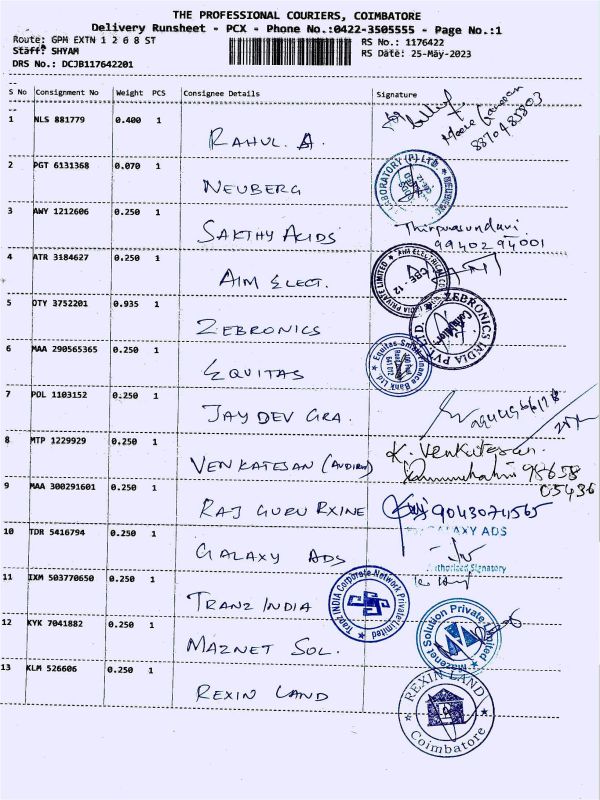 THE PROFESSIONAL COURIERS, COIMBATORE
Delivery Runsheet - PCX - Phone No.:0422-3505555 - Page No.:1
Route: GPM EXTN 1 2 6 8 ST
RS No.: 1176422
Staff: SHYAM
RS Date: 25-May-2023
DRS No.: DCJB117642201
S No Consignment No Weight PCS Consignee Details Signature
1 NLS 881779 0.400 1 RAHUL. A.
8870485803
2 PGT 6131368 0.070 1 NEUBERG
LABORATORY (P) LTD. ★ NEUBERG
3 AWY 1212606 0.250 1 SAKTHY ACIDS Thirpurasundari
99402 94001
4 ATR 3184627 0.250 1 AIM ELECT.
AIM ELECTRICAL INDIA PRIVATE LIMITED
CBE - 12
5 OTY 3752201 0.935 1 ZEBRONICS
ZEBRONICS INDIA PVT. LTD.
Coimbatore
6 MAA 290565365 0.250 1 EQUITAS
Equitas Small Finance Bank Ltd
7 POL 1103152 0.250 1 JAY DEV GRA.
8 MTP 1229929 0.250 1 VENKATESAN (AUDIRW) K. Venkatesan.
98658
05436
9 MAA 300291601 0.250 1 RAJ GURU RXINE 9043074565
GALAXY ADS
10 TDR 5416794 0.250 1 GALAXY ADS
Authorised Signatory
11 IXM 503770650 0.250 1 TRANZ INDIA
Tranz INDIA Corporate Network Private Limited
12 KYK 7041882 0.250 1 MAZNET SOL.
Mazenet Solution Private Limited
13 KLM 526606 0.250 1 REXIN LAND
REXIN LAND
Coimbatore